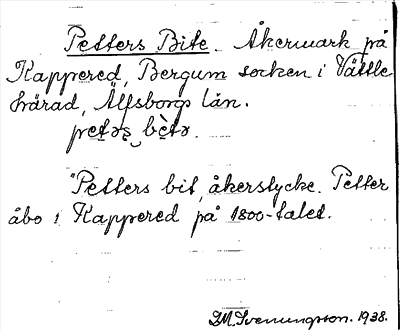 Petters Bite. Åkermark på
Kappered, Bergum socken i Vättle
härad, Älfsborgs län.
pretəʂ bètə.
"Petters bit, åkerstycke. Petter
åbo i Kappered på 1800-talet.
D.M. Svenungsson. 1938.